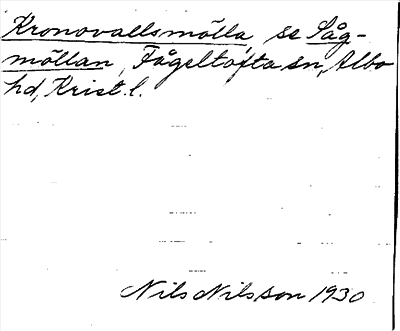 Kronovallsmölla, se Såg-
möllan, Fågeltofta sn, Albo
hd, Krist. l.
Nils Nilsson 1930